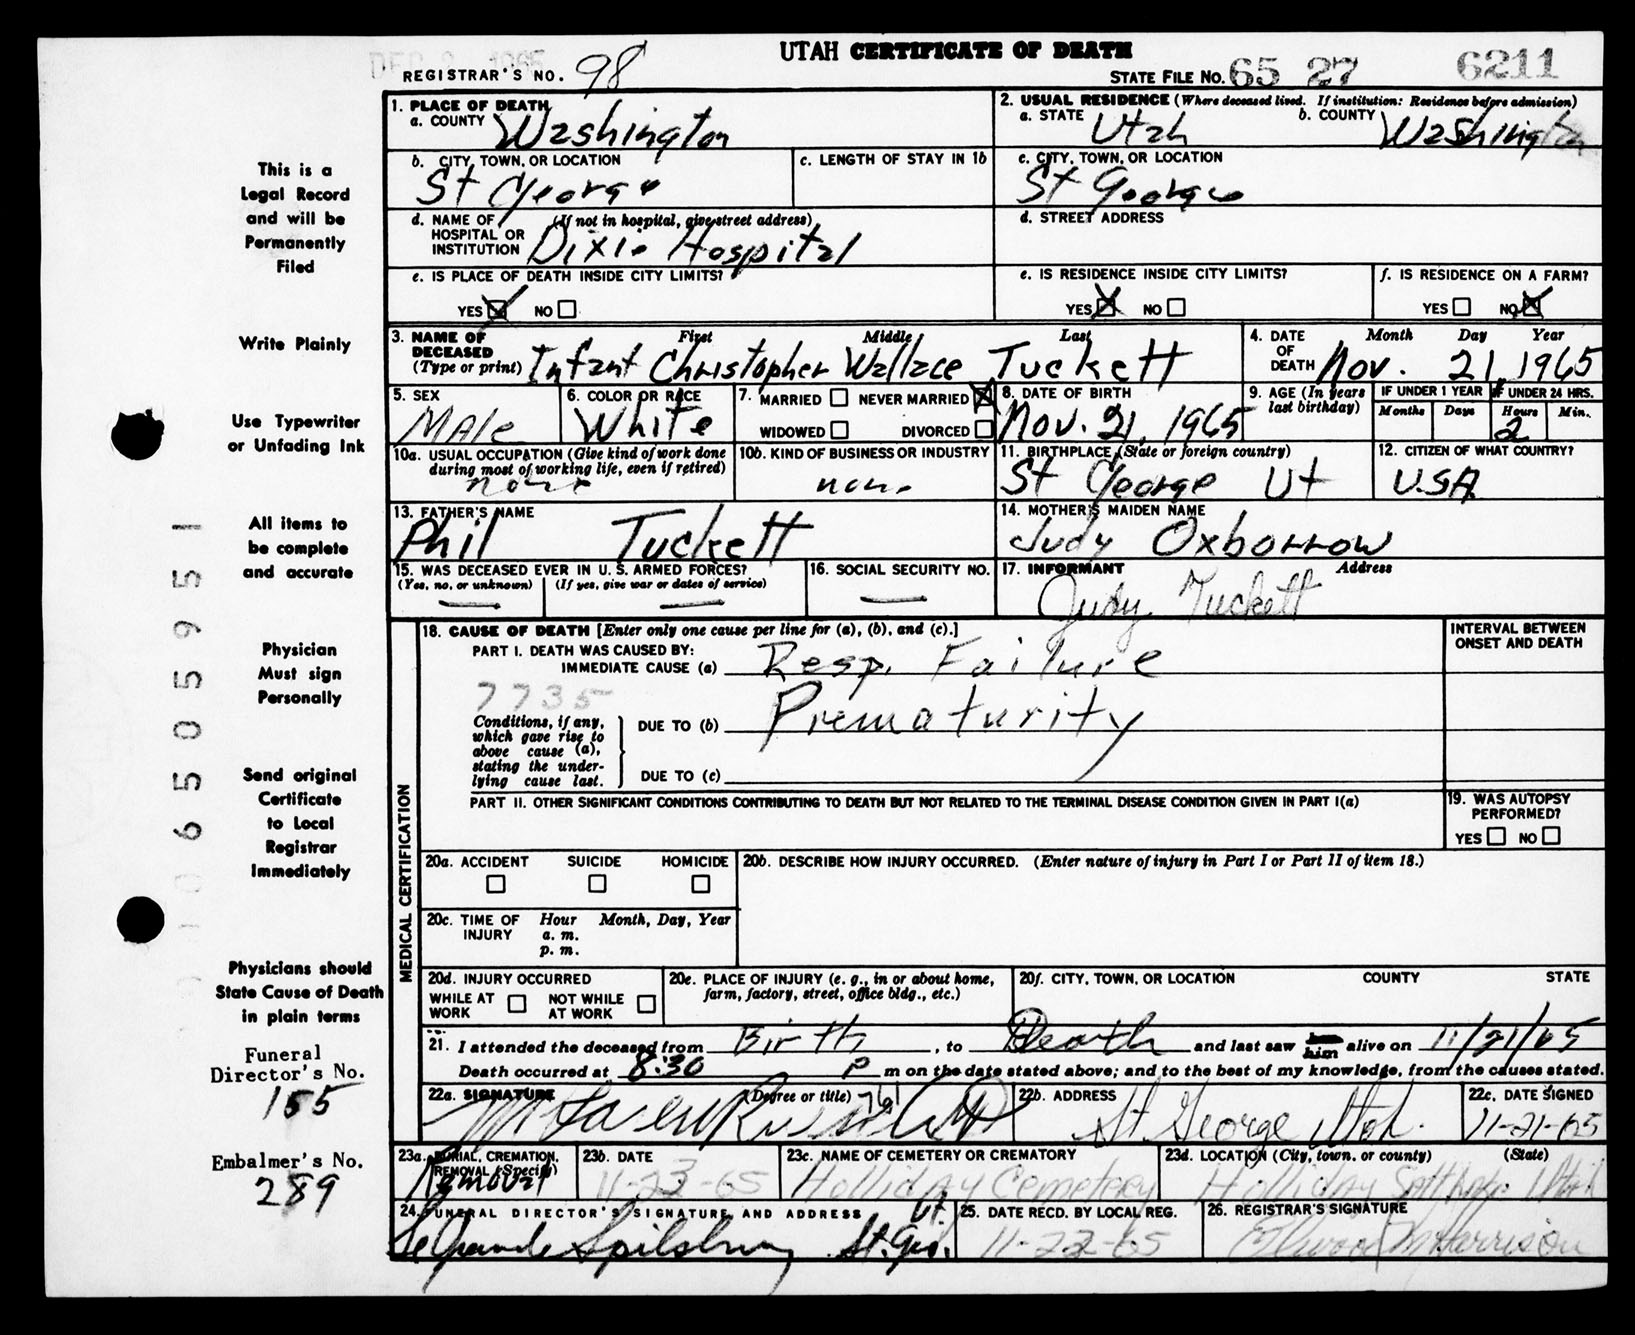 DEC 2 1965
UTAH CERTIFICATE OF DEATH
REGISTRAR'S NO. 98
STATE FILE NO. 65 27 6211
This is a
Legal Record
and will be
Permanently
Filed
Write Plainly
Use Typewriter
or Unfading Ink
All items to
be complete
and accurate
Physician
Must sign
Personally
Send original
Certificate
to Local
Registrar
Immediately
Physicians should
State Cause of Death
in plain terms
Funeral
Director's No.
155
Embalmer's No.
289
1. PLACE OF DEATH
a. COUNTY Washington
2. USUAL RESIDENCE (Where deceased lived. If institution: Residence before admission)
a. STATE Utah b. COUNTY Washington
b. CITY, TOWN, OR LOCATION
St George
c. LENGTH OF STAY IN 1b
c. CITY, TOWN, OR LOCATION
St George
d. NAME OF (If not in hospital, give street address)
HOSPITAL OR
INSTITUTION Dixie Hospital
d. STREET ADDRESS
e. IS PLACE OF DEATH INSIDE CITY LIMITS?
YES NO
e. IS RESIDENCE INSIDE CITY LIMITS?
YES NO
f. IS RESIDENCE ON A FARM?
YES NO
3. NAME OF First Middle Last
DECEASED
(Type or print) Infant Christopher Wallace Tuckett
4. DATE Month Day Year
OF
DEATH Nov. 21, 1965
5. SEX
Male
6. COLOR OR RACE
White
7. MARRIED NEVER MARRIED
WIDOWED DIVORCED
8. DATE OF BIRTH
Nov. 21, 1965
9. AGE (In years
last birthday)
IF UNDER 1 YEAR
Months Days
IF UNDER 24 HRS.
Hours Min.
2
10a. USUAL OCCUPATION (Give kind of work done
during most of working life, even if retired)
none
10b. KIND OF BUSINESS OR INDUSTRY
none
11. BIRTHPLACE (State or foreign country)
St George Ut
12. CITIZEN OF WHAT COUNTRY?
U.S.A.
13. FATHER'S NAME
Phil Tuckett
14. MOTHER'S MAIDEN NAME
Judy Oxborrow
15. WAS DECEASED EVER IN U. S. ARMED FORCES?
(Yes, no, or unknown) (If yes, give war or dates of service)
16. SOCIAL SECURITY NO.
17. INFORMANT Address
Judy Tuckett
MEDICAL CERTIFICATION
18. CAUSE OF DEATH [Enter only one cause per line for (a), (b), and (c).]
INTERVAL BETWEEN
ONSET AND DEATH
PART I. DEATH WAS CAUSED BY:
IMMEDIATE CAUSE (a) Resp. Failure
7735
Conditions, if any,
which gave rise to
above cause (a),
stating the under-
lying cause last.
DUE TO (b) Prematurity
DUE TO (c)
PART II. OTHER SIGNIFICANT CONDITIONS CONTRIBUTING TO DEATH BUT NOT RELATED TO THE TERMINAL DISEASE CONDITION GIVEN IN PART I(a)
19. WAS AUTOPSY
PERFORMED?
YES NO
20a. ACCIDENT SUICIDE HOMICIDE
20b. DESCRIBE HOW INJURY OCCURRED. (Enter nature of injury in Part I or Part II of item 18.)
20c. TIME OF Hour Month, Day, Year
INJURY a. m.
p. m.
20d. INJURY OCCURRED
WHILE AT NOT WHILE
WORK AT WORK
20e. PLACE OF INJURY (e. g., in or about home,
farm, factory, street, office bldg., etc.)
20f. CITY, TOWN, OR LOCATION COUNTY STATE
21. I attended the deceased from Birth, to Death and last saw her him alive on 11/21/65
Death occurred at 8:30 P m on the date stated above; and to the best of my knowledge, from the causes stated.
22a. SIGNATURE (Degree or title) 761
22b. ADDRESS
St. George Utah.
22c. DATE SIGNED
11-21-65
23a. BURIAL, CREMATION,
REMOVAL (Specify)
Removal
23b. DATE
11-23-65
23c. NAME OF CEMETERY OR CREMATORY
Holliday Cemetery
23d. LOCATION (City, town, or county) (State)
Holliday Salt Lake Utah
24. FUNERAL DIRECTOR'S SIGNATURE AND ADDRESS
LeGrande Spilsbury St. Geo. Ut.
25. DATE RECD. BY LOCAL REG.
11-22-65
26. REGISTRAR'S SIGNATURE
Ellwood M Harrison